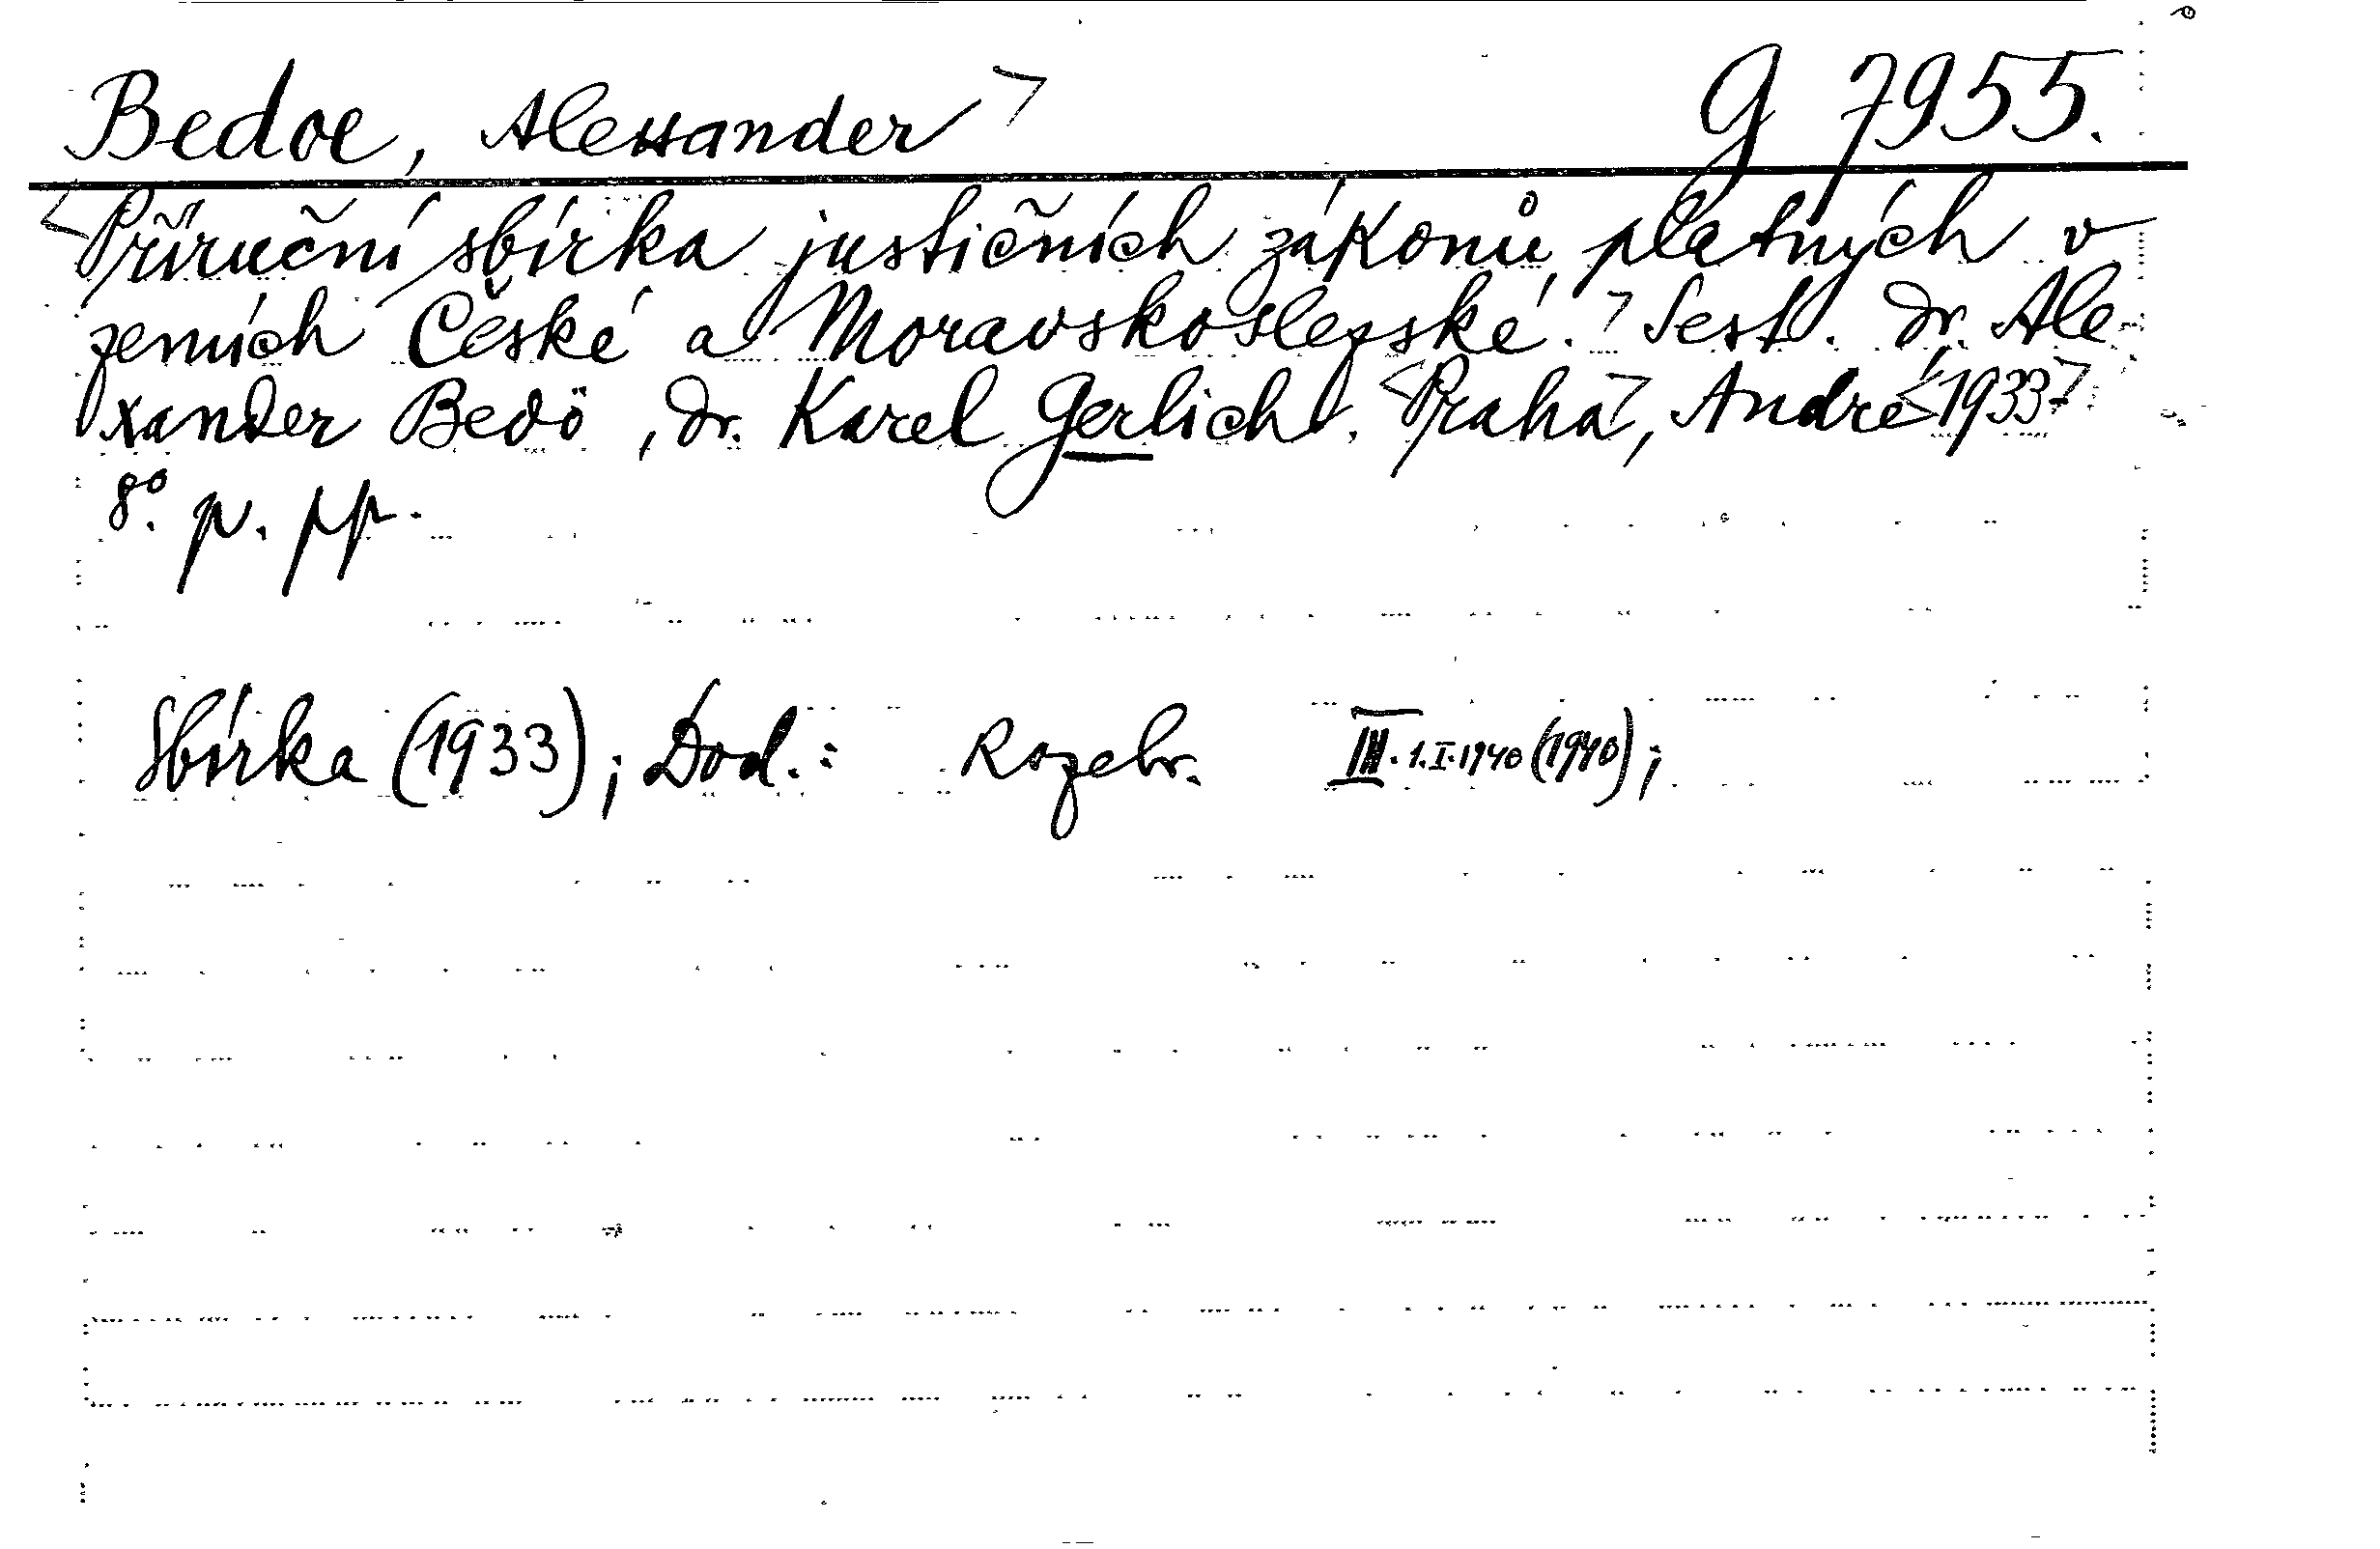 Bedoe, Alexander> G 7955.
<Příruční sbírka justičních zákonů, platných v
zemích České a Moravskoslezské.> Sest. Dr. Ale-
xander Bedö, Dr. Karel Gerlich. <Praha>, André <1933->
8°. p. pp.
Sbírka (1933); Dod.: Rozebr. III. 1.I.1940 (1940);